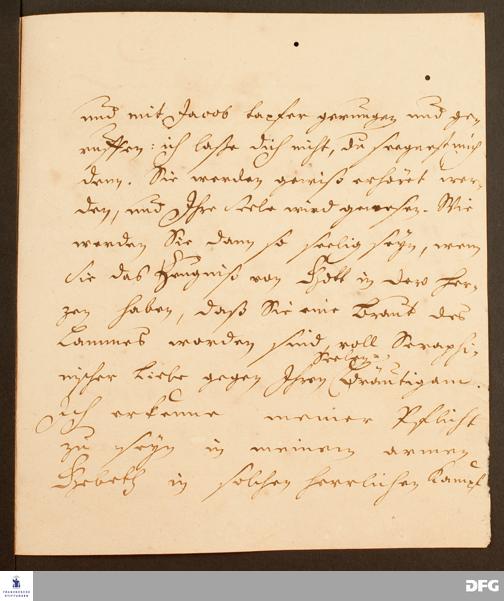 und mit Jacob tapfer gerungen und ger
ruffen: ich laße dich nicht, du seegnest mich
denn. Sie werden gewiß erhöret wer
den, und Ihre Seele wird genesen. Wie
werden Sie dann so seelig seyn, wenn
Sie das Zeugniß von Gott in dero Her-
zen haben, daß Sie eine Braut des
Lammes worden sind, voll Seraphi-
nischer Liebe gegen Ihren Seelen-Bräutigam.
Ich erkenne meiner Pflicht
zu seyn in meinem armen
Gebeth in solchen herrlichen Kampf
FRANCKESCHE STIFTUNGEN
DFG